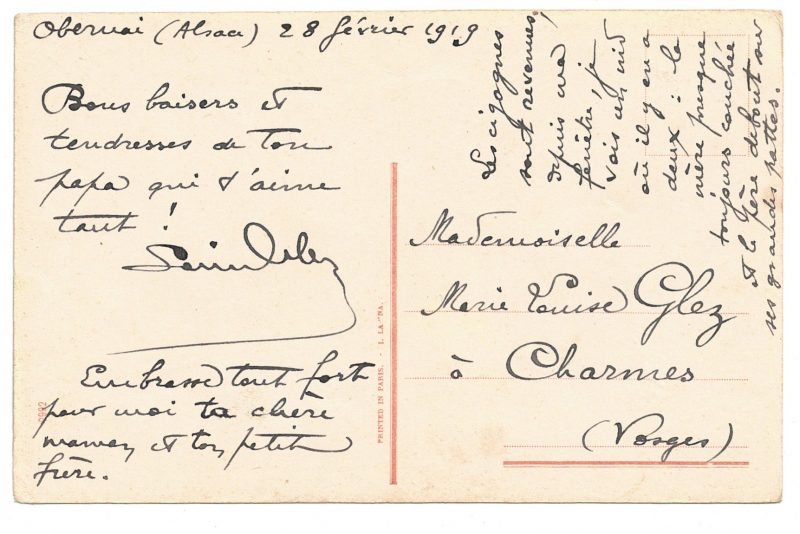 Obernai (Alsace) 28 février 1919
Bons baisers et
tendresses de ton
papa qui t'aime
tant !
Embrasse tout fort
pour moi ta chère
maman et ton petit
frère.
Les cigognes
sont revenues,
depuis ma
fenêtre, je
vois un nid
où il y en a
deux : la
mère presque
toujours couchée
et le père debout sur
ses grandes pattes.
Mademoiselle
Marie Louise Glez
à Charmes
(Vosges)
PRINTED IN PARIS. - I. LA